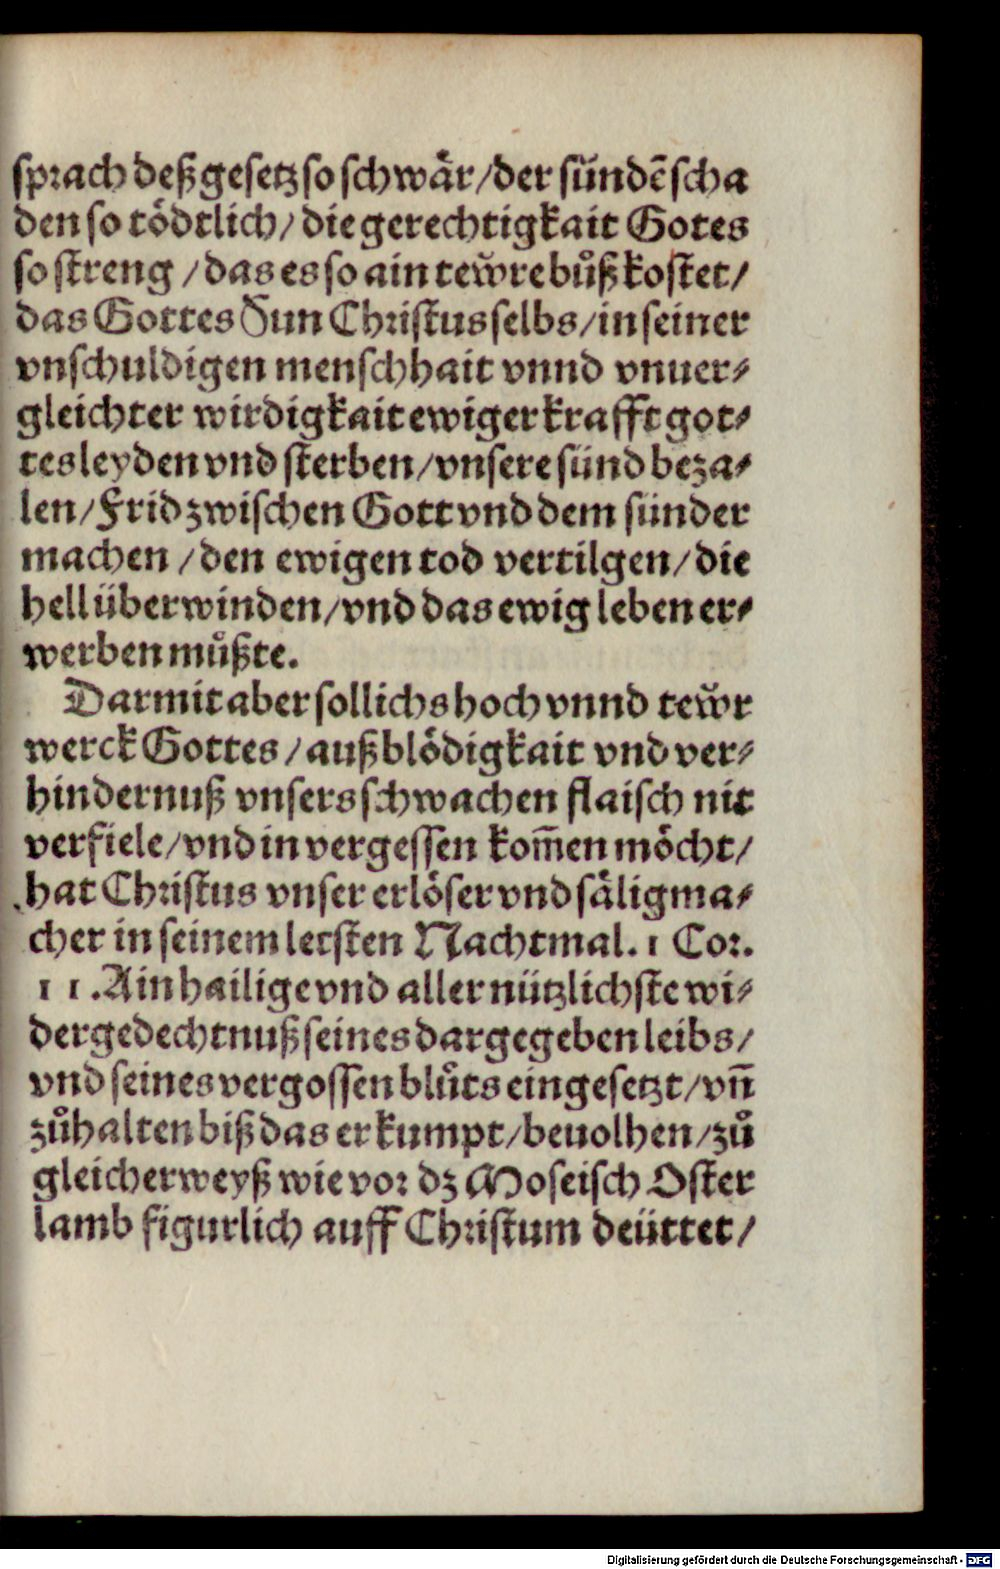 sprach deß gesetz so schwaͤr / der sündē scha
den so toͤdtlich / die gerechtigkait Gotes
so streng / das es so ain tewͤre buͦß kostet /
das Gottes Sun Christus selbs / in seiner
vnschuldigen menschhait vnnd vnuer⸗
gleichter wirdigkait ewiger krafft got⸗
tes leyden vnd sterben / vnsere sünd beza⸗
len / Frid zwischen Gott vnd dem sünder
machen / den ewigen tod vertilgen / die
hell überwinden / vnd das ewig leben er⸗
werben muͦßte.
Darmit aber sollichs hoch vnnd tewͤr
werck Gottes / auß bloͤdigkait vnd ver⸗
hindernuß vnsers schwachen flaisch nit
verfiele / vnd in vergessen kom̄en moͤcht /
hat Christus vnser erloͤser vnd saͤligma⸗
cher in seinem letsten Nachtmal. 1 Cor.
11. Ain hailige vnd aller nützlichste wi⸗
dergedechtnuß seines dargegeben leibs /
vnd seines vergossen bluͦts eingesetzt / vn̄
zuͦhalten biß das er kumpt / beuolhen / zuͦ
gleicherweyß wie vor dz Moseisch Oster
lamb figurlich auff Christum deüttet /
Digitalisierung gefördert durch die Deutsche Forschungsgemeinschaft - DFG